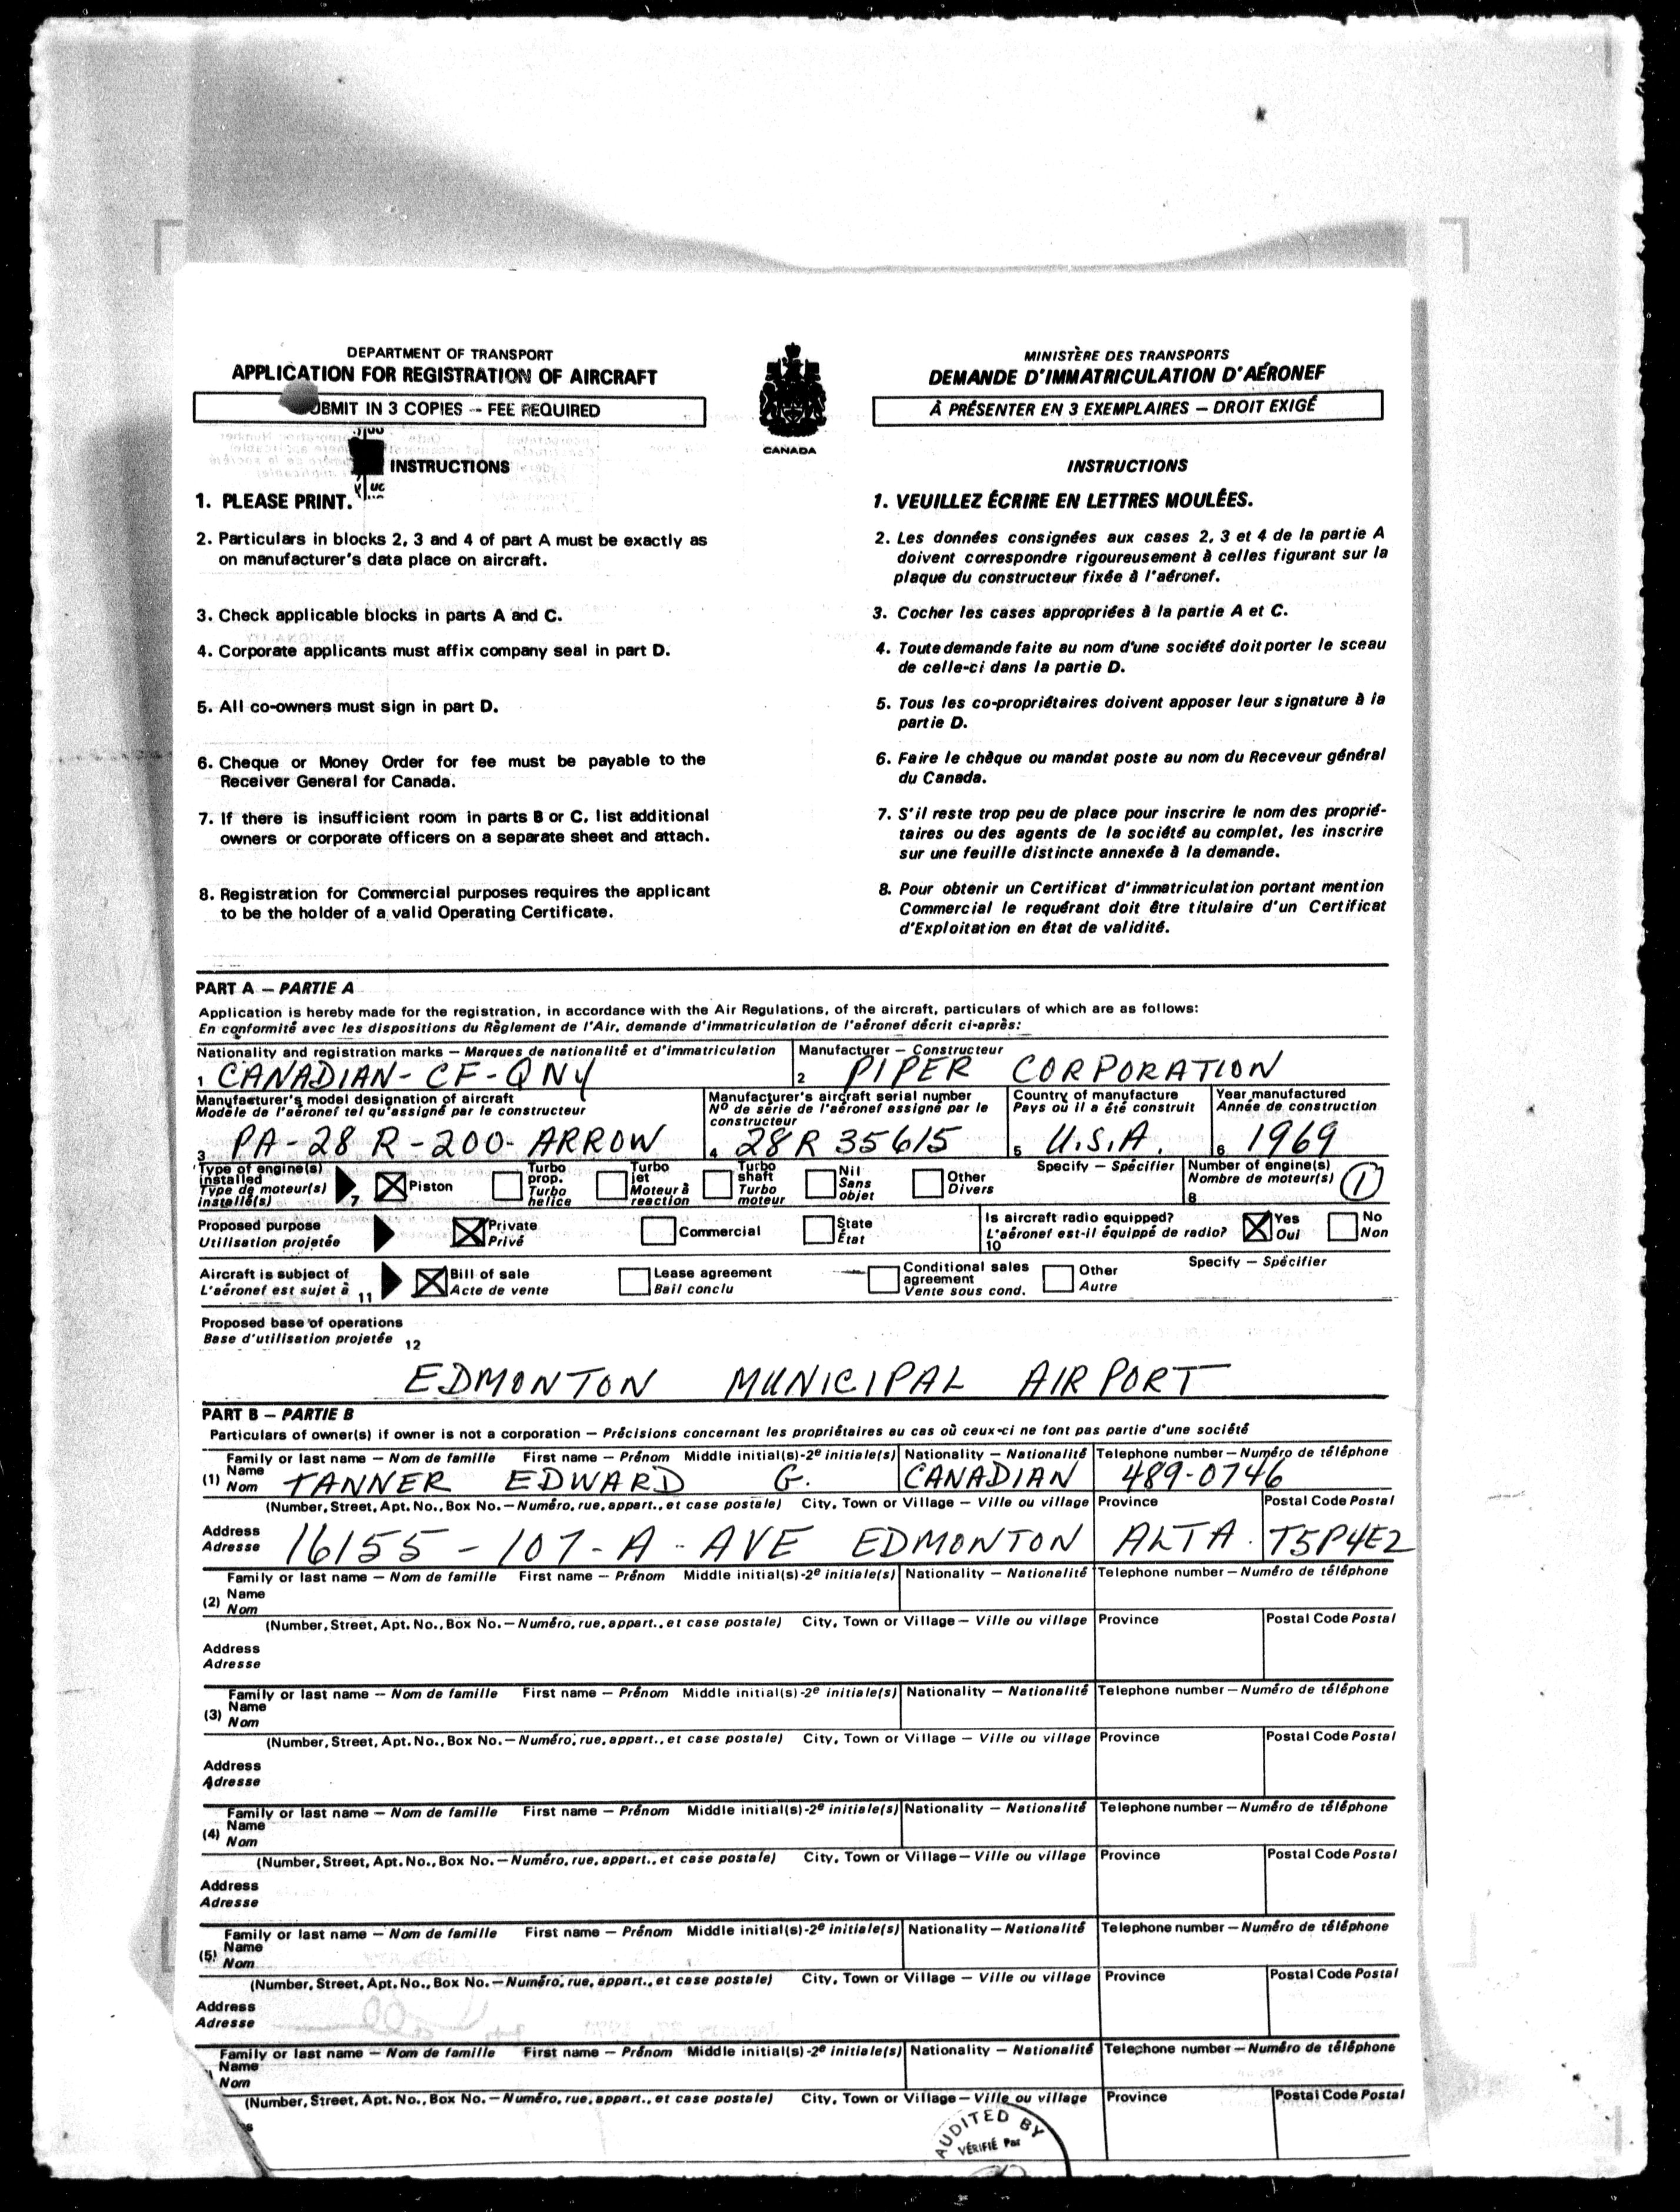 DEPARTMENT OF TRANSPORT
APPLICATION FOR REGISTRATION OF AIRCRAFT
SUBMIT IN 3 COPIES -- FEE REQUIRED
CANADA
MINISTÈRE DES TRANSPORTS
DEMANDE D'IMMATRICULATION D'AÉRONEF
À PRÉSENTER EN 3 EXEMPLAIRES — DROIT EXIGÉ
INSTRUCTIONS
1. PLEASE PRINT.
2. Particulars in blocks 2, 3 and 4 of part A must be exactly as
on manufacturer's data place on aircraft.
3. Check applicable blocks in parts A and C.
4. Corporate applicants must affix company seal in part D.
5. All co-owners must sign in part D.
6. Cheque or Money Order for fee must be payable to the
Receiver General for Canada.
7. If there is insufficient room in parts B or C, list additional
owners or corporate officers on a separate sheet and attach.
8. Registration for Commercial purposes requires the applicant
to be the holder of a valid Operating Certificate.
INSTRUCTIONS
1. VEUILLEZ ÉCRIRE EN LETTRES MOULÉES.
2. Les données consignées aux cases 2, 3 et 4 de la partie A
doivent correspondre rigoureusement à celles figurant sur la
plaque du constructeur fixée à l'aéronef.
3. Cocher les cases appropriées à la partie A et C.
4. Toute demande faite au nom d'une société doit porter le sceau
de celle-ci dans la partie D.
5. Tous les co-propriétaires doivent apposer leur signature à la
partie D.
6. Faire le chèque ou mandat poste au nom du Receveur général
du Canada.
7. S'il reste trop peu de place pour inscrire le nom des proprié-
taires ou des agents de la société au complet, les inscrire
sur une feuille distincte annexée à la demande.
8. Pour obtenir un Certificat d'immatriculation portant mention
Commercial le requérant doit être titulaire d'un Certificat
d'Exploitation en état de validité.
PART A — PARTIE A
Application is hereby made for the registration, in accordance with the Air Regulations, of the aircraft, particulars of which are as follows:
En conformité avec les dispositions du Règlement de l'Air, demande d'immatriculation de l'aéronef décrit ci-après:
Nationality and registration marks — Marques de nationalité et d'immatriculation
1 CANADIAN - CF-QNY
Manufacturer — Constructeur
2 PIPER CORPORATION
Manufacturer's model designation of aircraft
Modèle de l'aéronef tel qu'assigné par le constructeur
3 PA-28R-200- ARROW
Manufacturer's aircraft serial number
Nº de série de l'aéronef assigné par le
constructeur
4 28R35615
Country of manufacture
Pays où il a été construit
5 U.S.A.
Year manufactured
Année de construction
6 1969
Type of engine(s)
installed
Type de moteur(s)
installé(s) 7
Piston
Turbo
prop.
Turbo
hélice
Turbo
jet
Moteur à
réaction
Turbo
shaft
Turbo
moteur
Nil
Sans
objet
Other
Divers
Specify — Spécifier
Number of engine(s)
Nombre de moteur(s) 1
8
Proposed purpose
Utilisation projetée
Private
Privé
Commercial
State
État
Is aircraft radio equipped?
L'aéronef est-il équippé de radio?
10
Yes
Oui
No
Non
Aircraft is subject of
L'aéronef est sujet à 11
Bill of sale
Acte de vente
Lease agreement
Bail conclu
Conditional sales
agreement
Vente sous cond.
Other
Autre
Specify — Spécifier
Proposed base of operations
Base d'utilisation projetée 12
EDMONTON MUNICIPAL AIRPORT
PART B — PARTIE B
Particulars of owner(s) if owner is not a corporation — Précisions concernant les propriétaires au cas où ceux-ci ne font pas partie d'une société
Family or last name — Nom de famille First name — Prénom Middle initial(s)-2e initiale(s) Nationality — Nationalité Telephone number — Numéro de téléphone
(1) Name
Nom TANNER EDWARD G. CANADIAN 489-0746
(Number, Street, Apt. No., Box No. — Numéro, rue, appart., et case postale) City, Town or Village — Ville ou village Province Postal Code Postal
Address
Adresse 16155 - 107-A - AVE EDMONTON ALTA. T5P4E2
Family or last name — Nom de famille First name — Prénom Middle initial(s)-2e initiale(s) Nationality — Nationalité Telephone number — Numéro de téléphone
(2) Name
Nom
(Number, Street, Apt. No., Box No. — Numéro, rue, appart., et case postale) City, Town or Village — Ville ou village Province Postal Code Postal
Address
Adresse
Family or last name — Nom de famille First name — Prénom Middle initial(s)-2e initiale(s) Nationality — Nationalité Telephone number — Numéro de téléphone
(3) Name
Nom
(Number, Street, Apt. No., Box No. — Numéro, rue, appart., et case postale) City, Town or Village — Ville ou village Province Postal Code Postal
Address
Adresse
Family or last name — Nom de famille First name — Prénom Middle initial(s)-2e initiale(s) Nationality — Nationalité Telephone number — Numéro de téléphone
(4) Name
Nom
(Number, Street, Apt. No., Box No. — Numéro, rue, appart., et case postale) City, Town or Village — Ville ou village Province Postal Code Postal
Address
Adresse
Family or last name — Nom de famille First name — Prénom Middle initial(s)-2e initiale(s) Nationality — Nationalité Telephone number — Numéro de téléphone
(5) Name
Nom
(Number, Street, Apt. No., Box No. — Numéro, rue, appart., et case postale) City, Town or Village — Ville ou village Province Postal Code Postal
Address
Adresse
Family or last name — Nom de famille First name — Prénom Middle initial(s)-2e initiale(s) Nationality — Nationalité Telephone number — Numéro de téléphone
Name
Nom
(Number, Street, Apt. No., Box No. — Numéro, rue, appart., et case postale) City, Town or Village — Ville ou village Province Postal Code Postal
AUDITED BY
VÉRIFIÉ Par